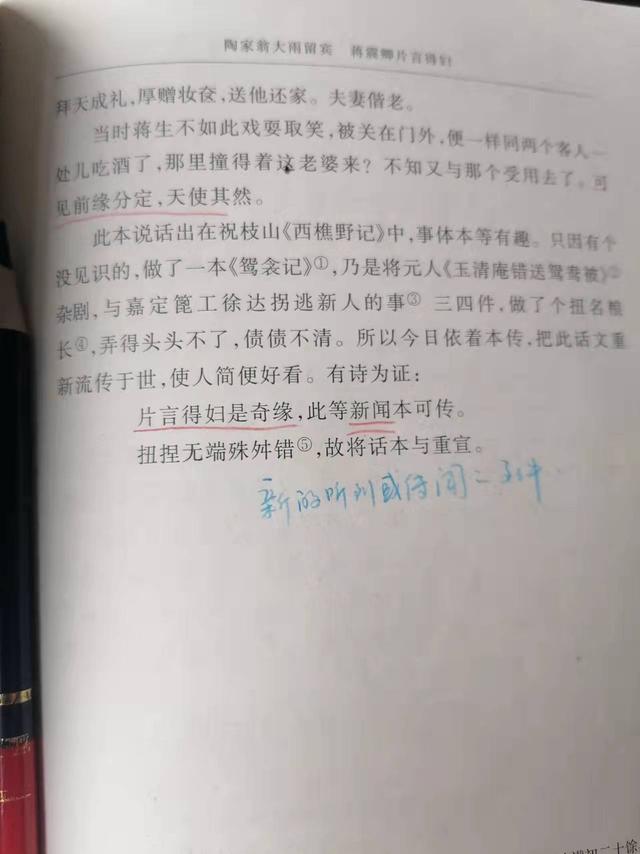 陶家翁大雨留宾 蒋震卿片言得妇
拜天成礼,厚赠妆奁,送他还家。夫妻偕老。
当时蒋生不如此戏耍取笑,被关在门外,便一样同两个客人一
处儿吃酒了,那里撞得着这老婆来?不知又与那个受用去了。可
见前缘分定,天使其然。
此本说话出在祝枝山《西樵野记》中,事体本等有趣。只因有个
没见识的,做了一本《鸳衾记》①,乃是将元人《玉清庵错送鸳鸯被》②
杂剧,与嘉定篦工徐达拐逃新人的事③三四件,做了个扭名粮
长④,弄得头头不了,债债不清。所以今日依着本传,把此话文重
新流传于世,使人简便好看。有诗为证:
片言得妇是奇缘,此等新闻本可传。
扭捏无端殊舛错⑤,故将话本与重宣。
新的听到或传闻之事件
二十馀